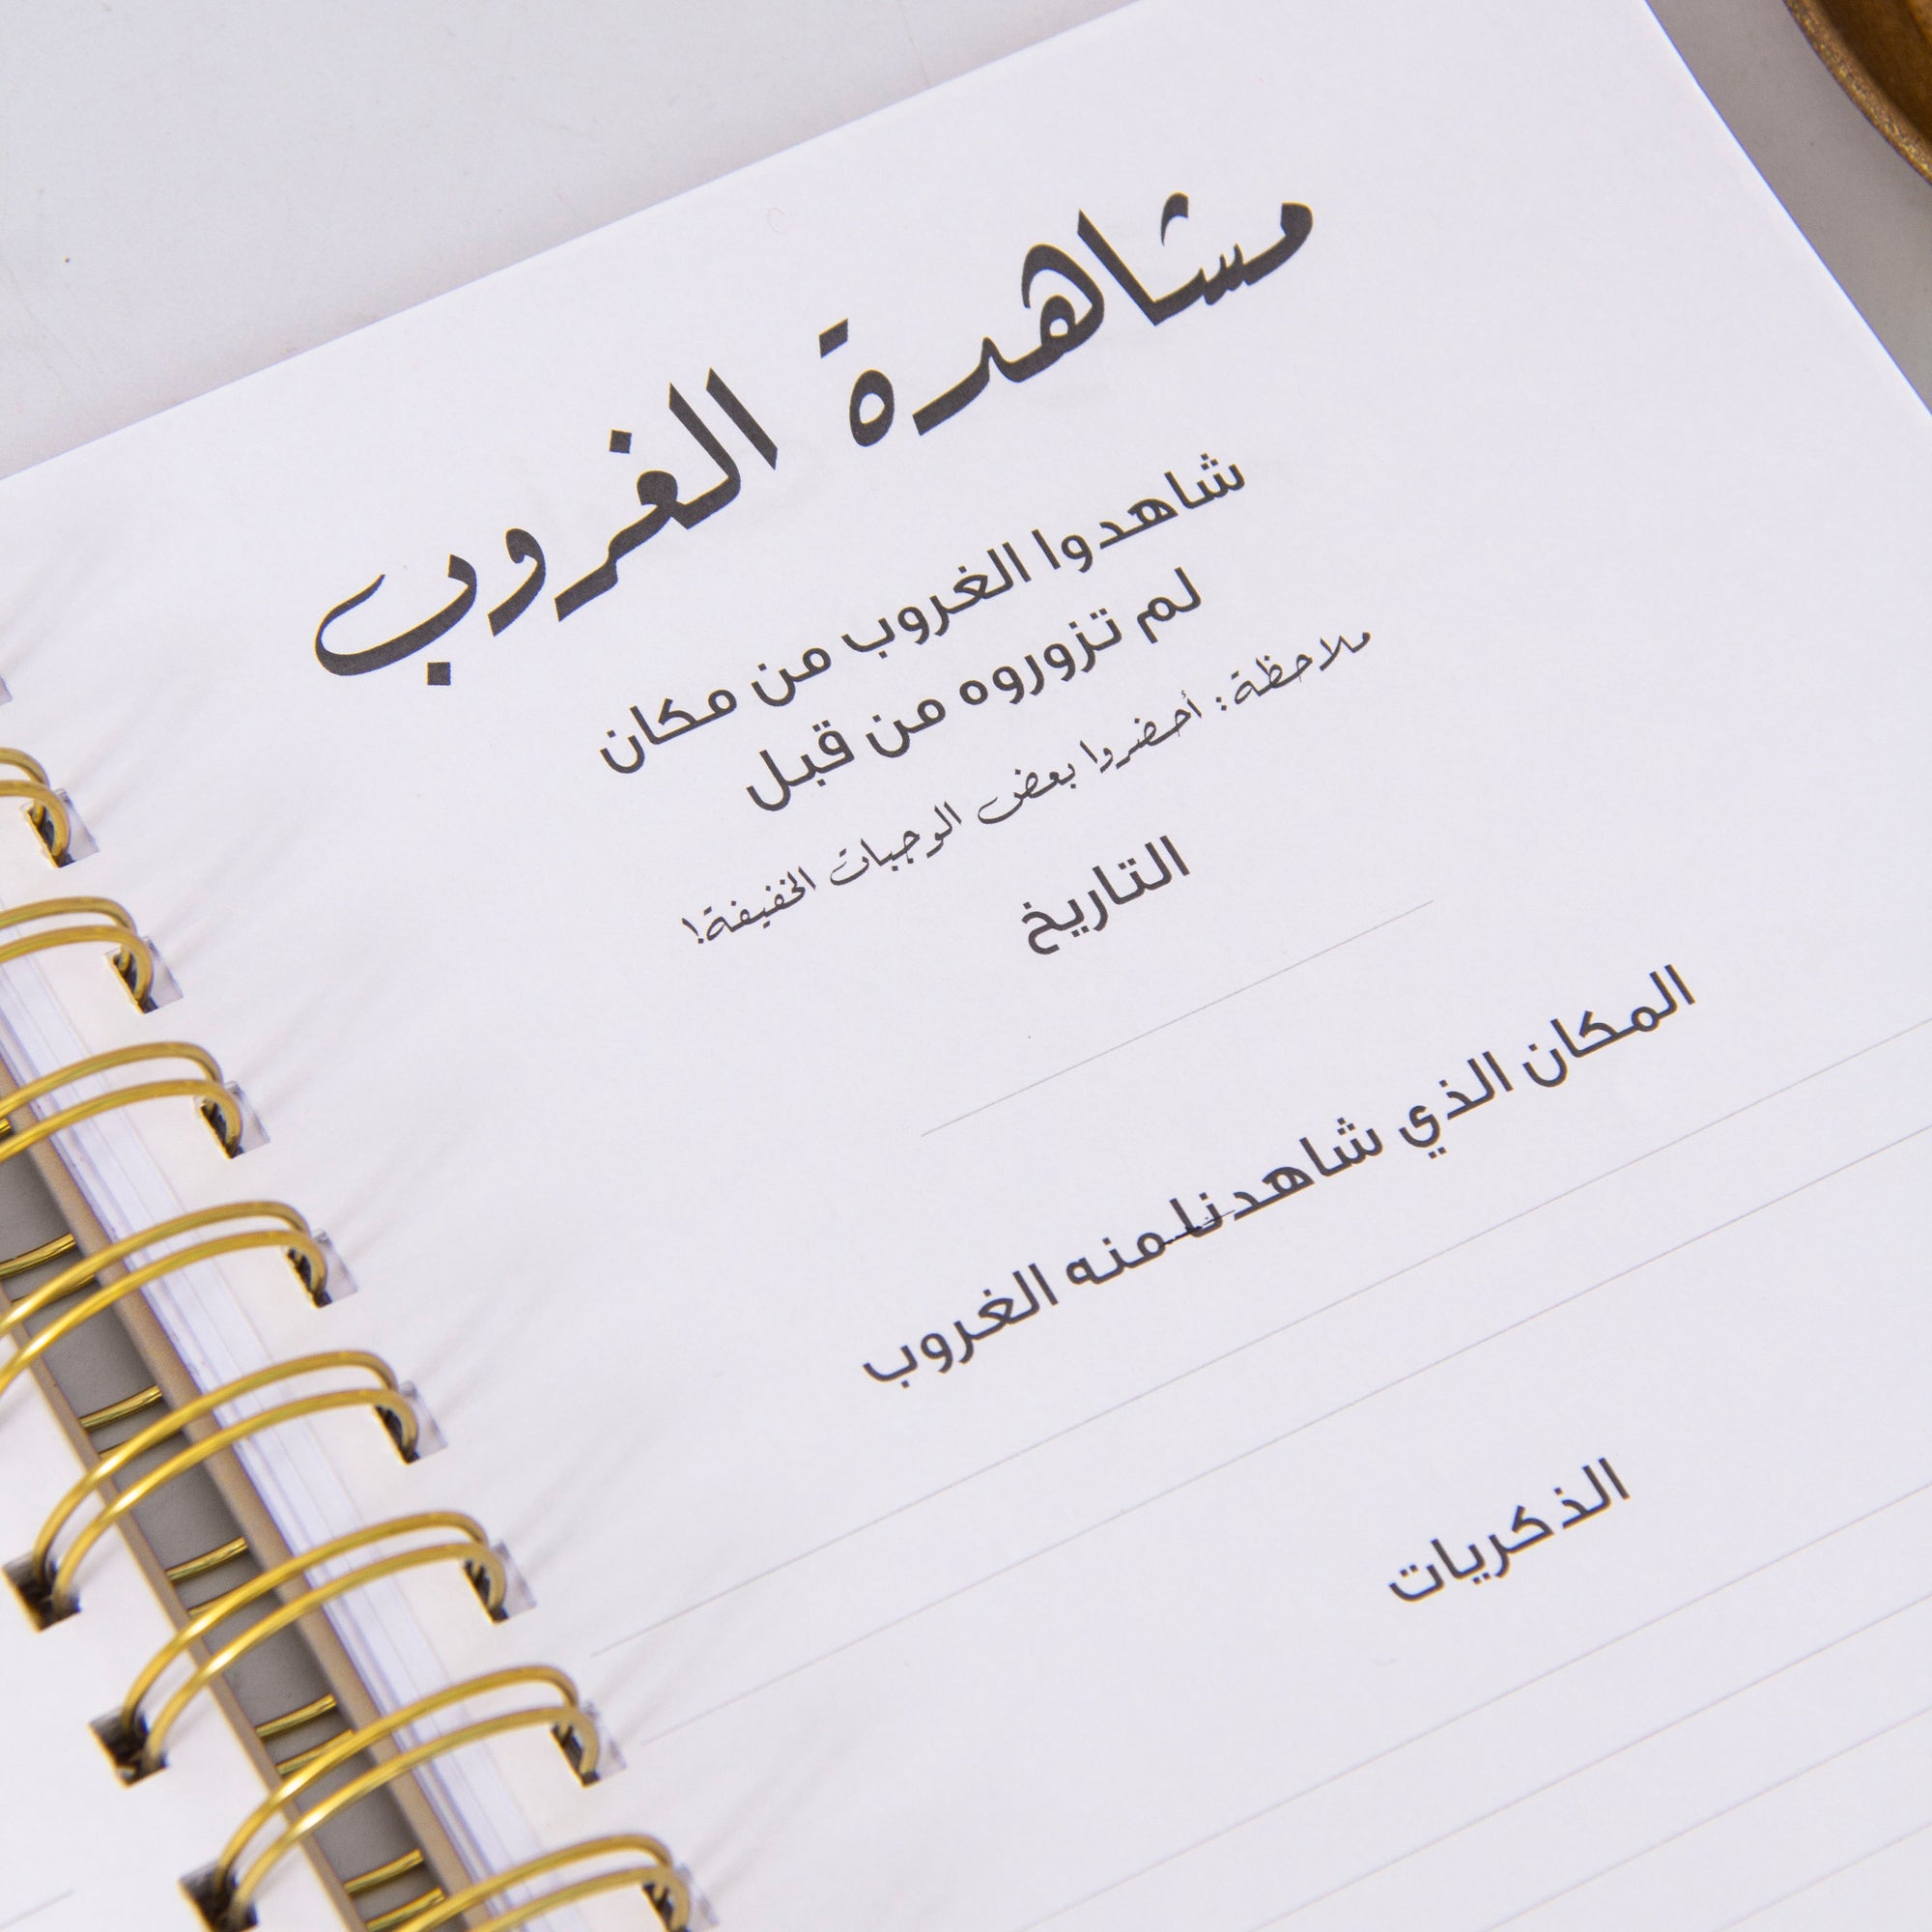 مشاهدة الغروب
شاهدوا الغروب من مكان
لم تزوروه من قبل
ملاحظة: أحضروا بعض الوجبات الخفيفة!
التاريخ
المكان الذي شاهدنا منه الغروب
الذكريات